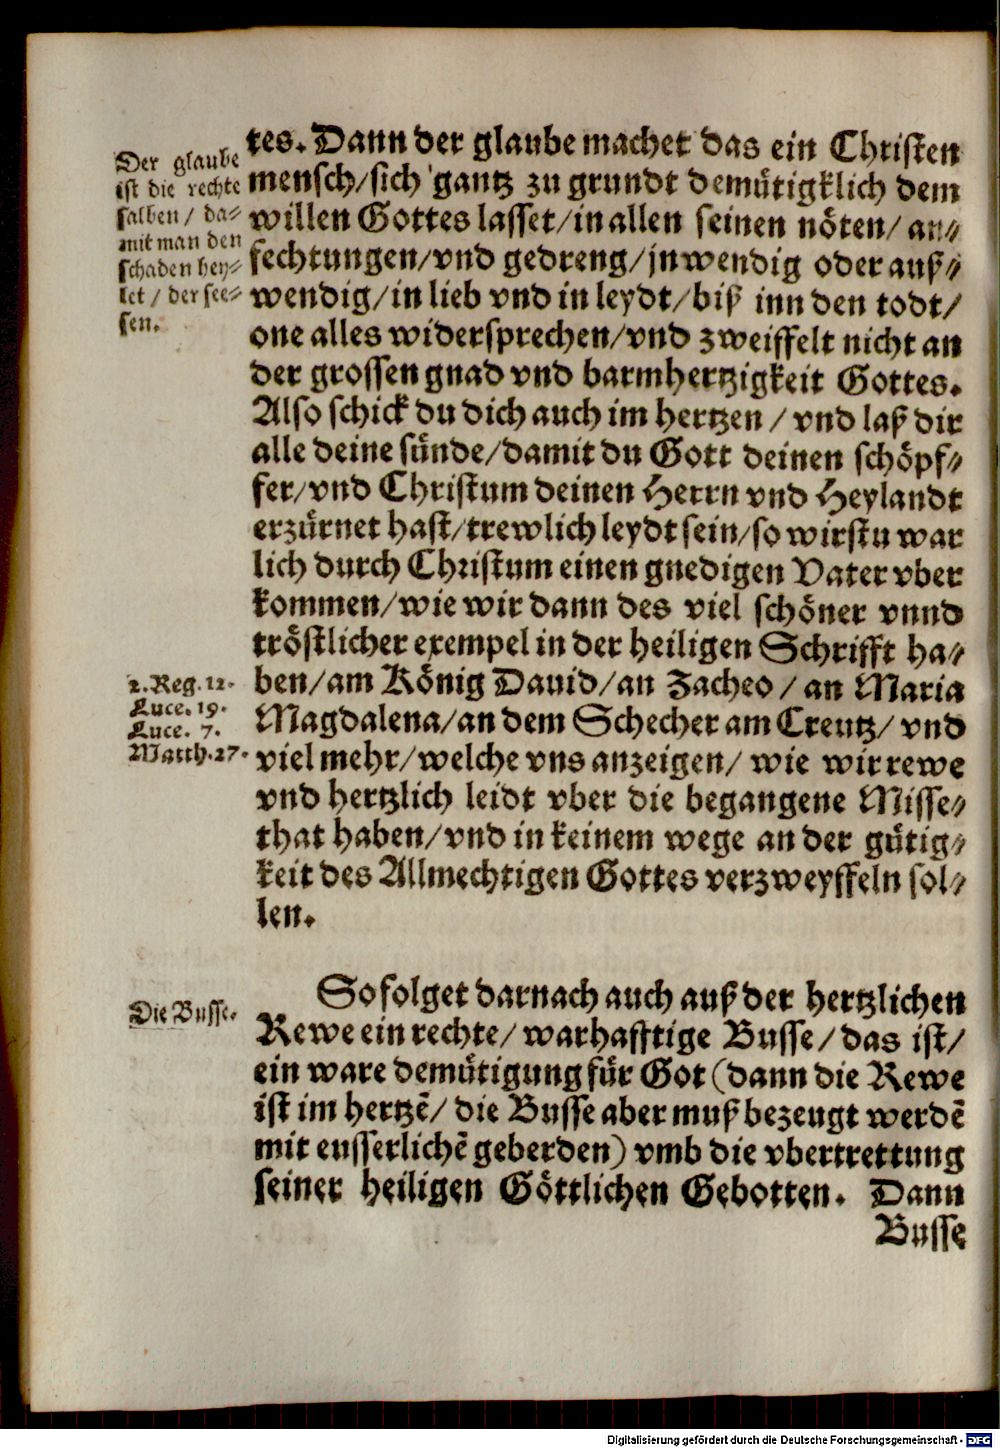 Der glaube
ist die rechte
salben / da⸗
mit man den
schaden hey⸗
let / der see⸗
len.
tes. Dann der glaube machet das ein Christen
mensch/sich gantz zu grundt demütigklich dem
willen Gottes lasset/in allen seinen nöten/ an⸗
fechtungen/vnd gedreng/jnwendig oder auß⸗
wendig/in lieb vnd in leydt/biß inn den todt/
one alles widersprechen/vnd zweiffelt nicht an
der grossen gnad vnd barmhertzigkeit Gottes.
Also schick du dich auch im hertzen / vnd laß dir
alle deine sünde/damit du Gott deinen schöpf⸗
fer/vnd Christum deinen Herrn vnd Heylandt
erzürnet hast/trewlich leydt sein/so wirstu war
lich durch Christum einen gnedigen Vater vber
kommen/wie wir dann des viel schöner vnnd
tröstlicher exempel in der heiligen Schrifft ha⸗
ben/am König Dauid/an Zacheo / an Maria
Magdalena/an dem Schecher am Creutz/ vnd
viel mehr/welche vns anzeigen/ wie wir rewe
vnd hertzlich leidt vber die begangene Misse⸗
that haben/vnd in keinem wege an der gütig⸗
keit des Allmechtigen Gottes verzweyffeln sol⸗
len.
2. Reg. 12.
Luce. 19.
Luce. 7.
Matth. 27.
Die Busse.
So folget darnach auch auß der hertzlichen
Rewe ein rechte/ warhafftige Busse/das ist/
ein ware demütigung für Got (dann die Rewe
ist im hertzẽ/ die Busse aber muß bezeugt werdẽ
mit eusserlichẽ geberden) vmb die vbertrettung
seiner heiligen Göttlichen Gebotten. Dann
Busse
Digitalisierung gefördert durch die Deutsche Forschungsgemeinschaft - DFG